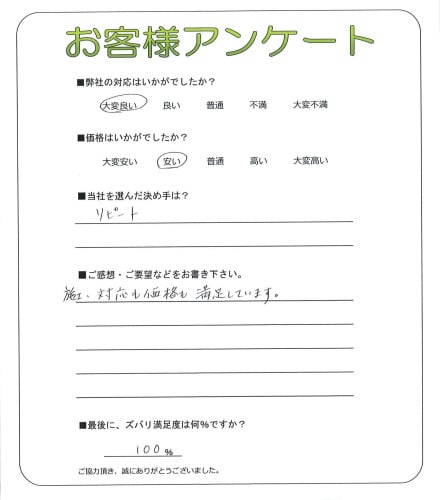 お客様アンケート
■弊社の対応はいかがでしたか？
大変良い 良い 普通 不満 大変不満
■価格はいかがでしたか？
大変安い 安い 普通 高い 大変高い
■当社を選んだ決め手は？
リピート
■ご感想・ご要望などをお書き下さい。
施工、対応も価格も満足しています。
■最後に、ズバリ満足度は何％ですか？
100％
ご協力頂き、誠にありがとうございました。